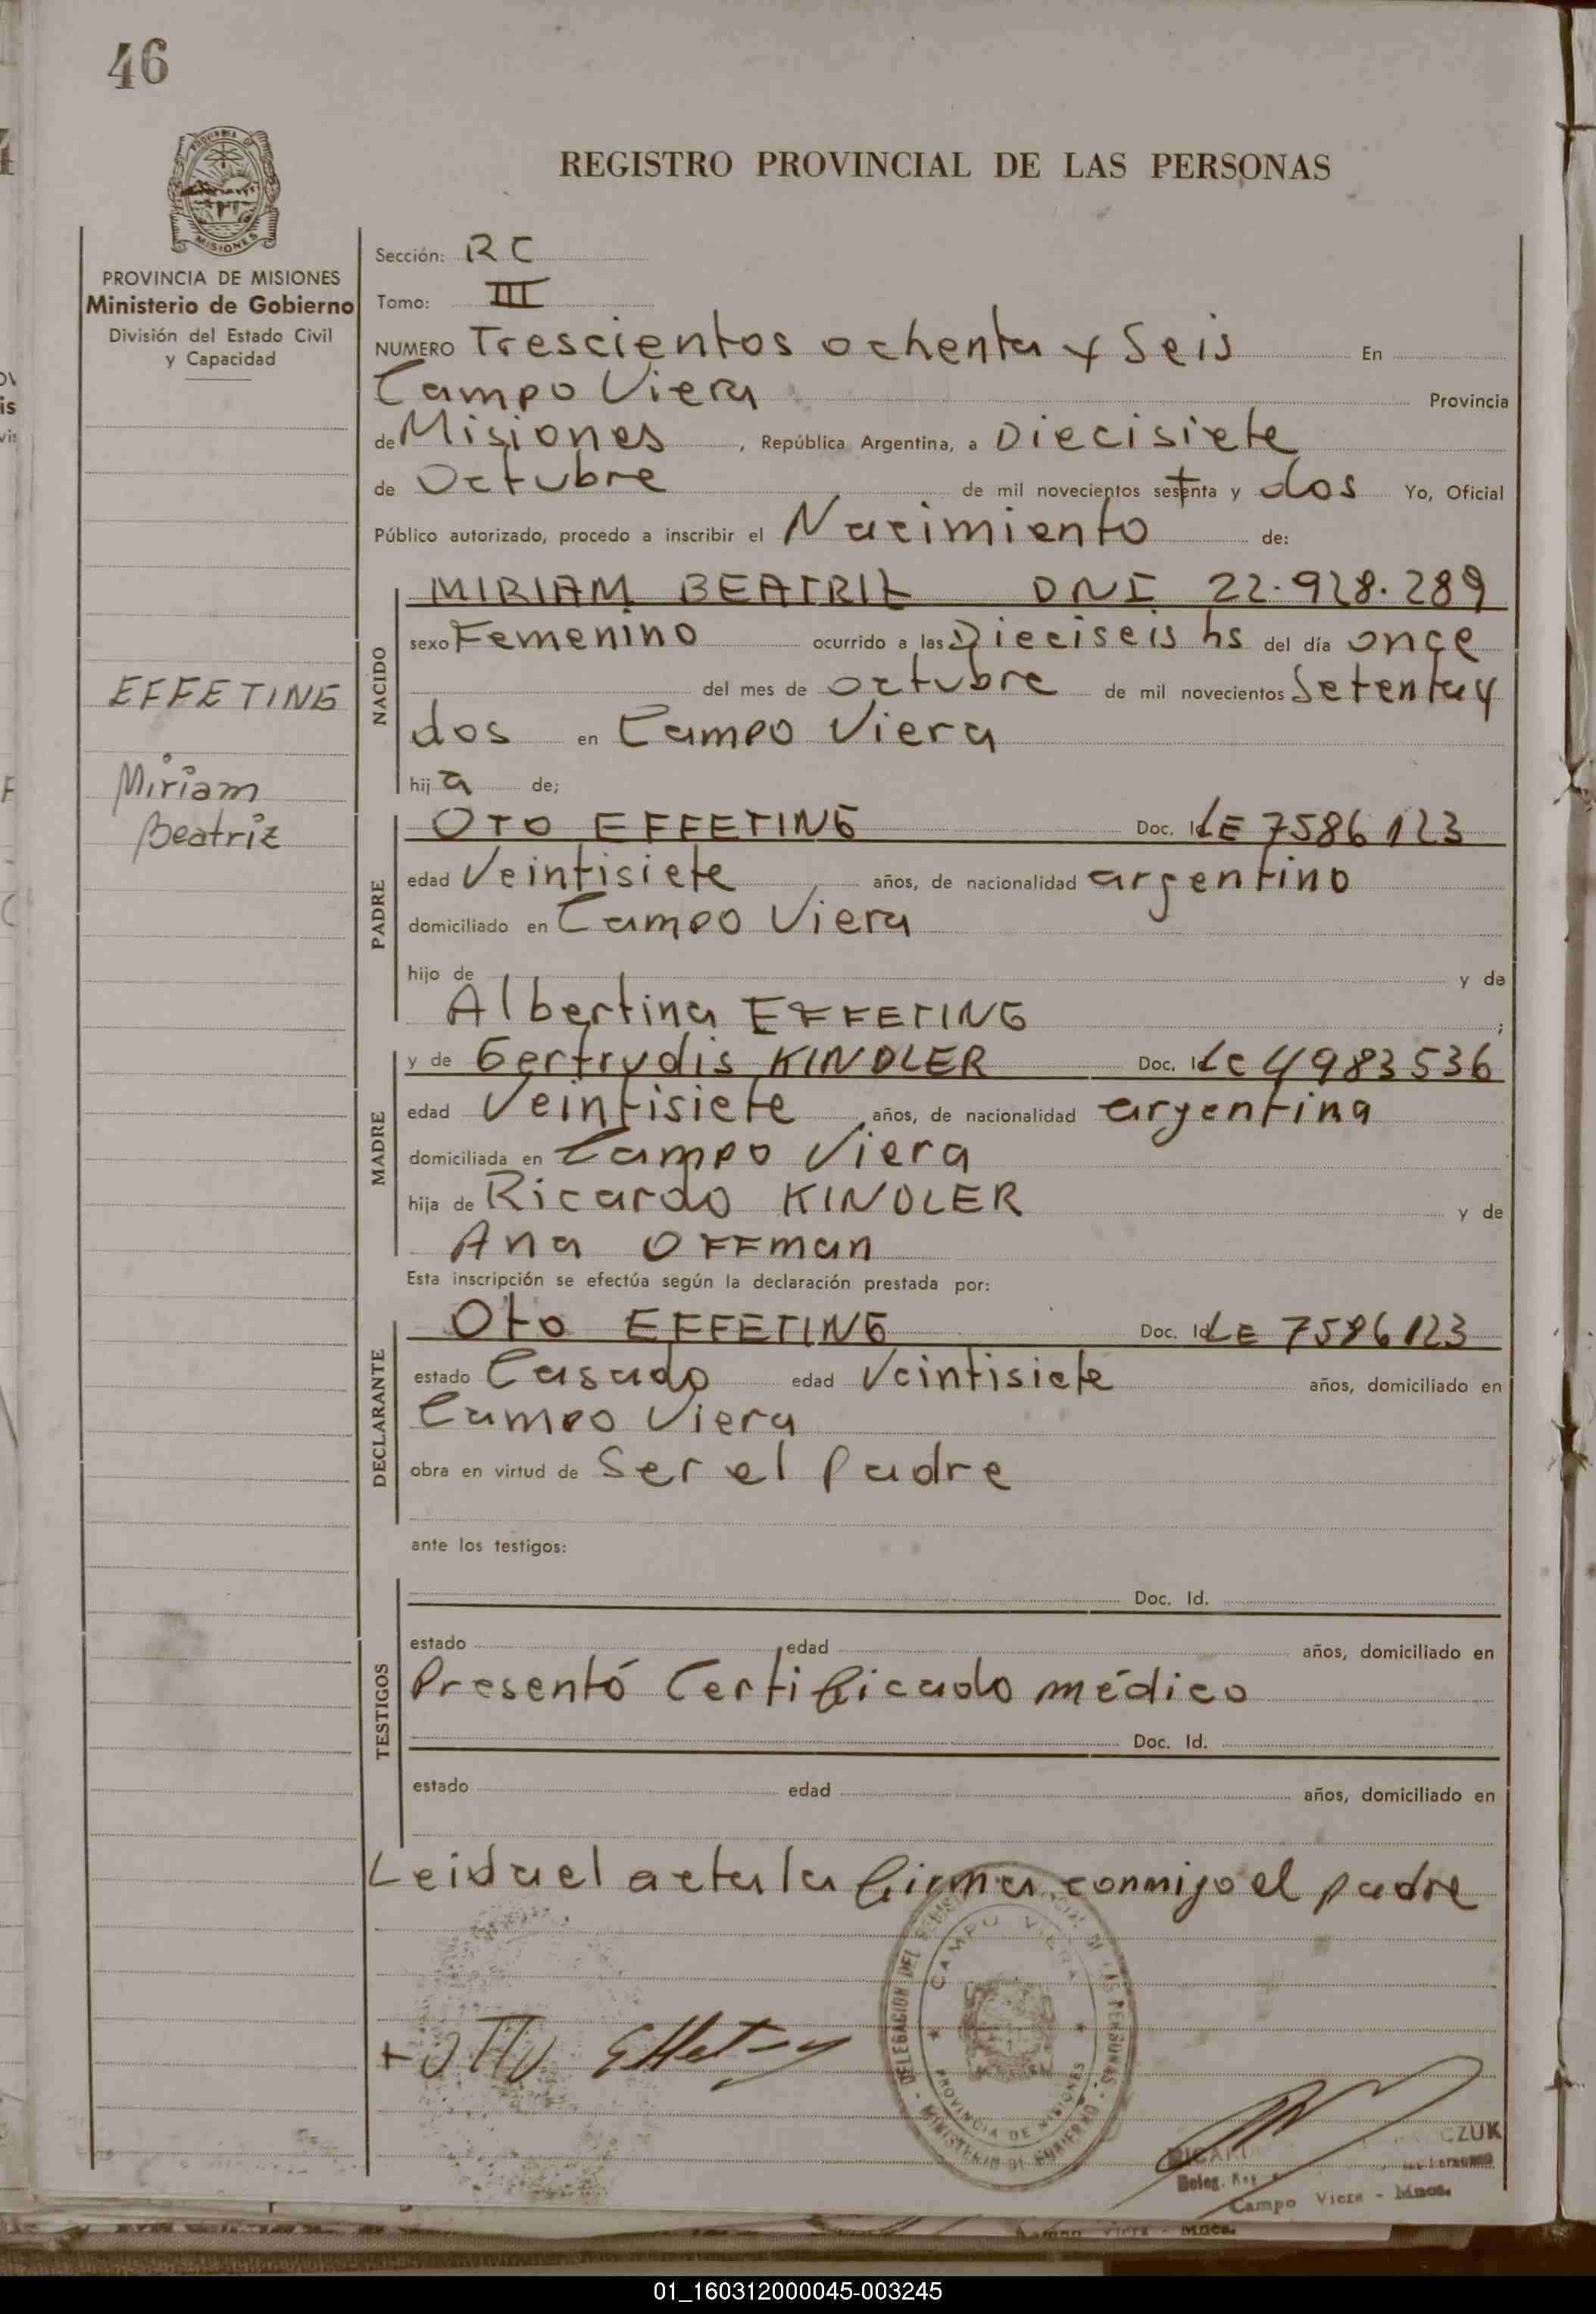 46
REGISTRO PROVINCIAL DE LAS PERSONAS
MISIONES
PROVINCIA DE MISIONES
Ministerio de Gobierno
División del Estado Civil
y Capacidad
EFFETING
Miriam
Beatriz
Sección: RC
Tomo: III
NUMERO Trescientos ochenta y Seis En
Campo Viera Provincia
de Misiones, República Argentina, a Diecisiete
de Octubre de mil novecientos setenta y dos Yo, Oficial
Público autorizado, procedo a inscribir el Nacimiento de:
NACIDO
MIRIAM BEATRIZ DNI 22.928.289
sexo Femenino ocurrido a las Dieciseis hs del día once
del mes de octubre de mil novecientos Setenta y
dos en Campo Viera
hija de;
PADRE
OTO EFFETING Doc. Id LE 7586123
edad Veintisiete años, de nacionalidad argentino
domiciliado en Campo Viera
hijo de y de
Albertina EFFETING ;
MADRE
y de Gertrudis KINDLER Doc. Id LC 4983536
edad Veintisiete años, de nacionalidad argentina
domiciliada en Campo Viera
hija de Ricardo KINDLER y de
Ana OFFman
Esta inscripción se efectúa según la declaración prestada por:
DECLARANTE
Oto EFFETING Doc. Id LE 7586123
estado Casado edad Veintisiete años, domiciliado en
Campo Viera
obra en virtud de Ser el Padre
ante los testigos:
TESTIGOS
Doc. Id.
estado edad años, domiciliado en
Presentó Certificado médico
Doc. Id.
estado edad años, domiciliado en
Leida el acta la firma conmigo el padre
CAMPO VIERA
DELEGACION DEL REGISTRO PROVINCIAL DE LAS PERSONAS
PROVINCIA DE MISIONES
MINISTERIO DE GOBIERNO
+ OTTO Effeting
CZUK
Campo Viera - Mnes.
Campo Viera - Mnes.
01_160312000045-003245